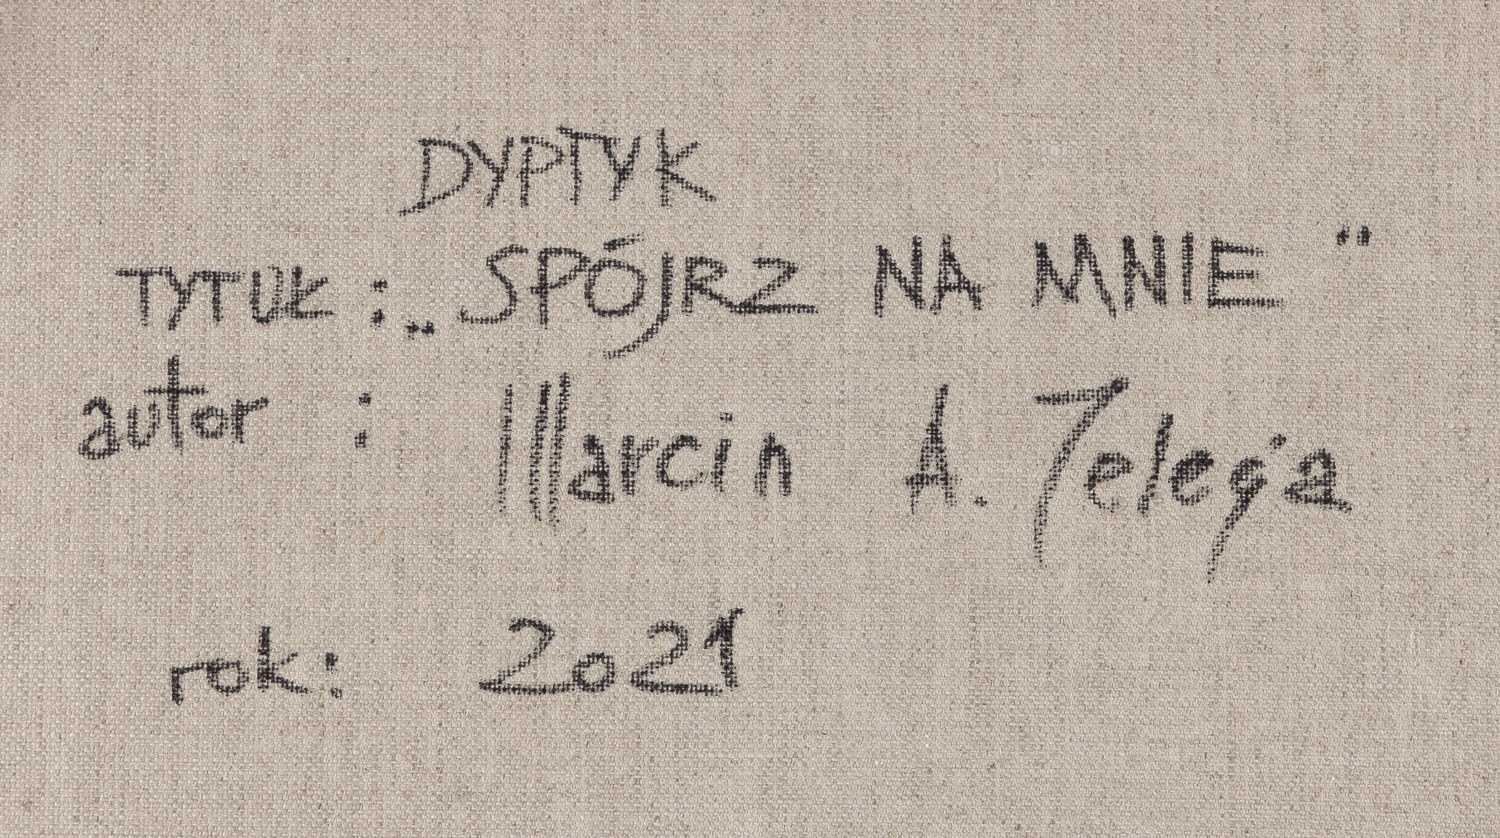 DYPTYK
TYTUŁ: „SPÓJRZ NA MNIE"
autor: Marcin A.
rok: 2021